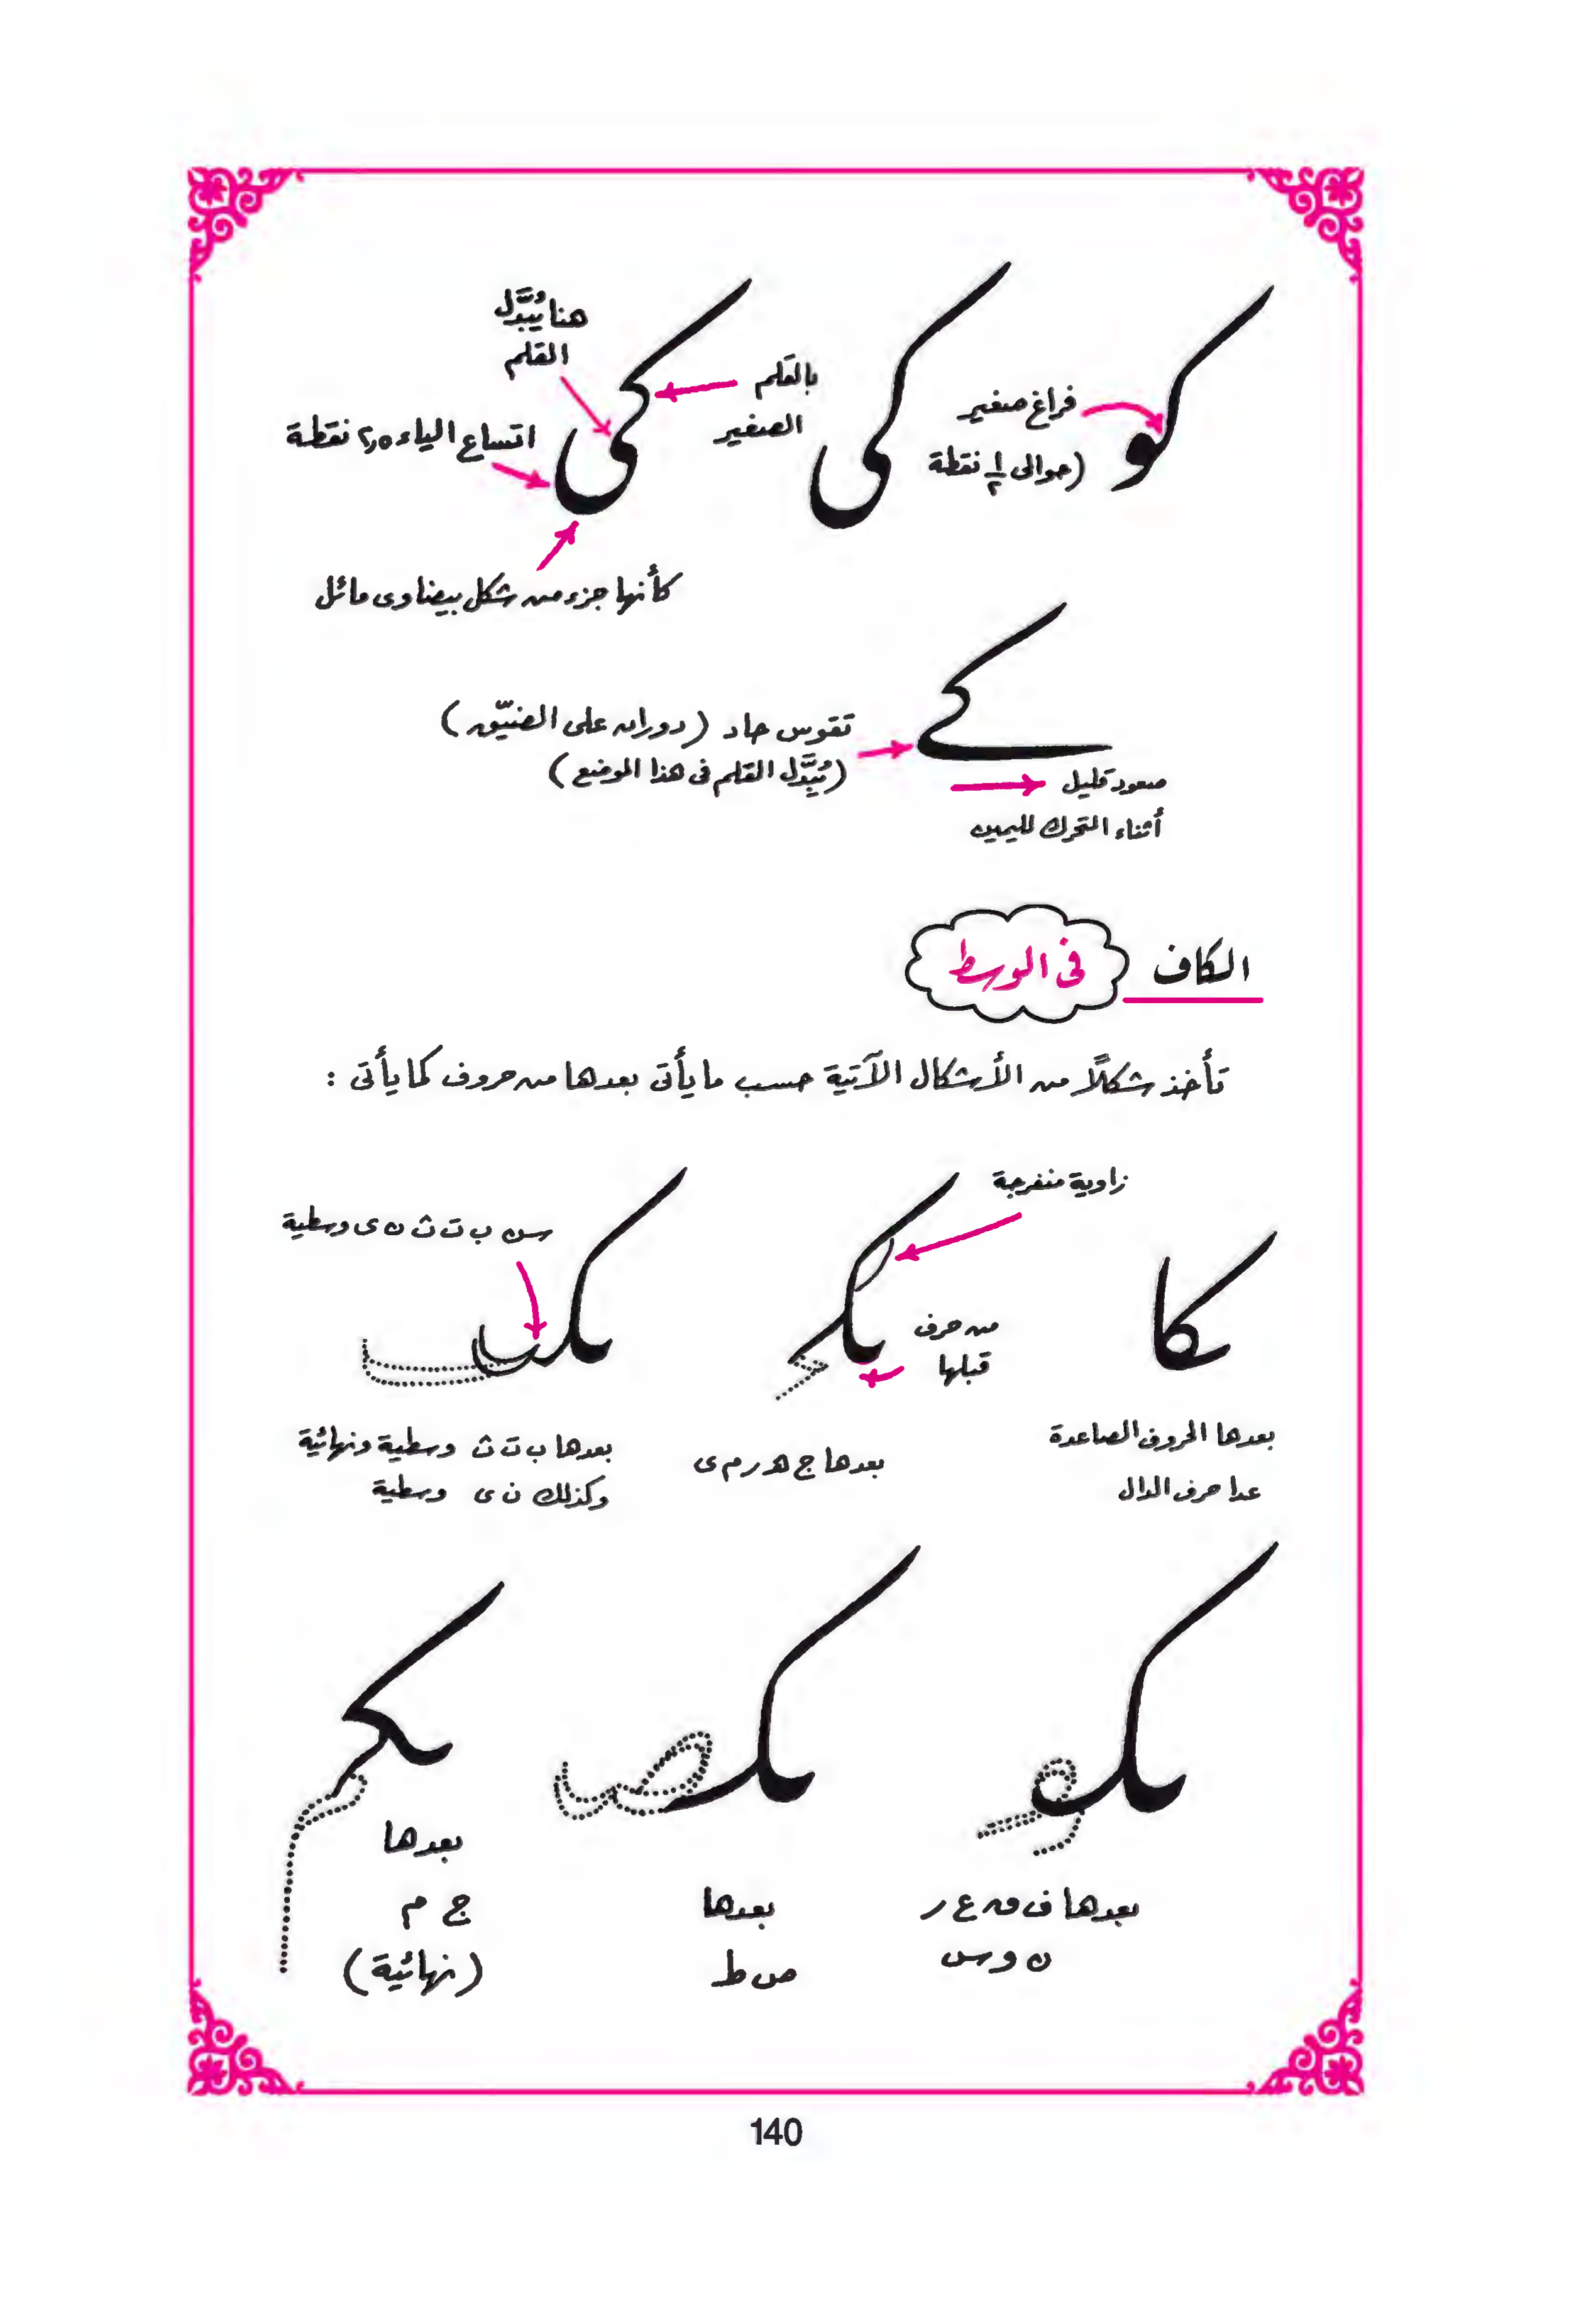 كو
فراغ صغير
(حوالى ١/٢ نقطة
كى
بالقلم
الصغير
كى
هنا يُبَدَّل
القلم
اتساع الياء ٢٫٥ نقطة
كأنها جزء من شكل بيضاوى مائل
كے
تقوس حاد (دوران على الضيّق)
(يُبَدَّل القلم فى هذا الموضع)
صعود قليل
أثناء التحرك لليمين
الكاف فى الوسط
تأخذ شكلًا من الأشكال الآتية حسب ما يأتى بعدها من حروف كما يأتى :
زاوية منفرجة
من حرف
قبلها
سن ب ت ث ن ى وسطية
بعدها الحروف الصاعدة
عدا حرف الدال
بعدها ج هـ ر م ى
بعدها ب ت ث وسطية ونهائية
وكذلك ن ى وسطية
بعدها ف ق ع ر
ن و س
بعدها
ص ط
بعدها
ج م
(نهائية)
140